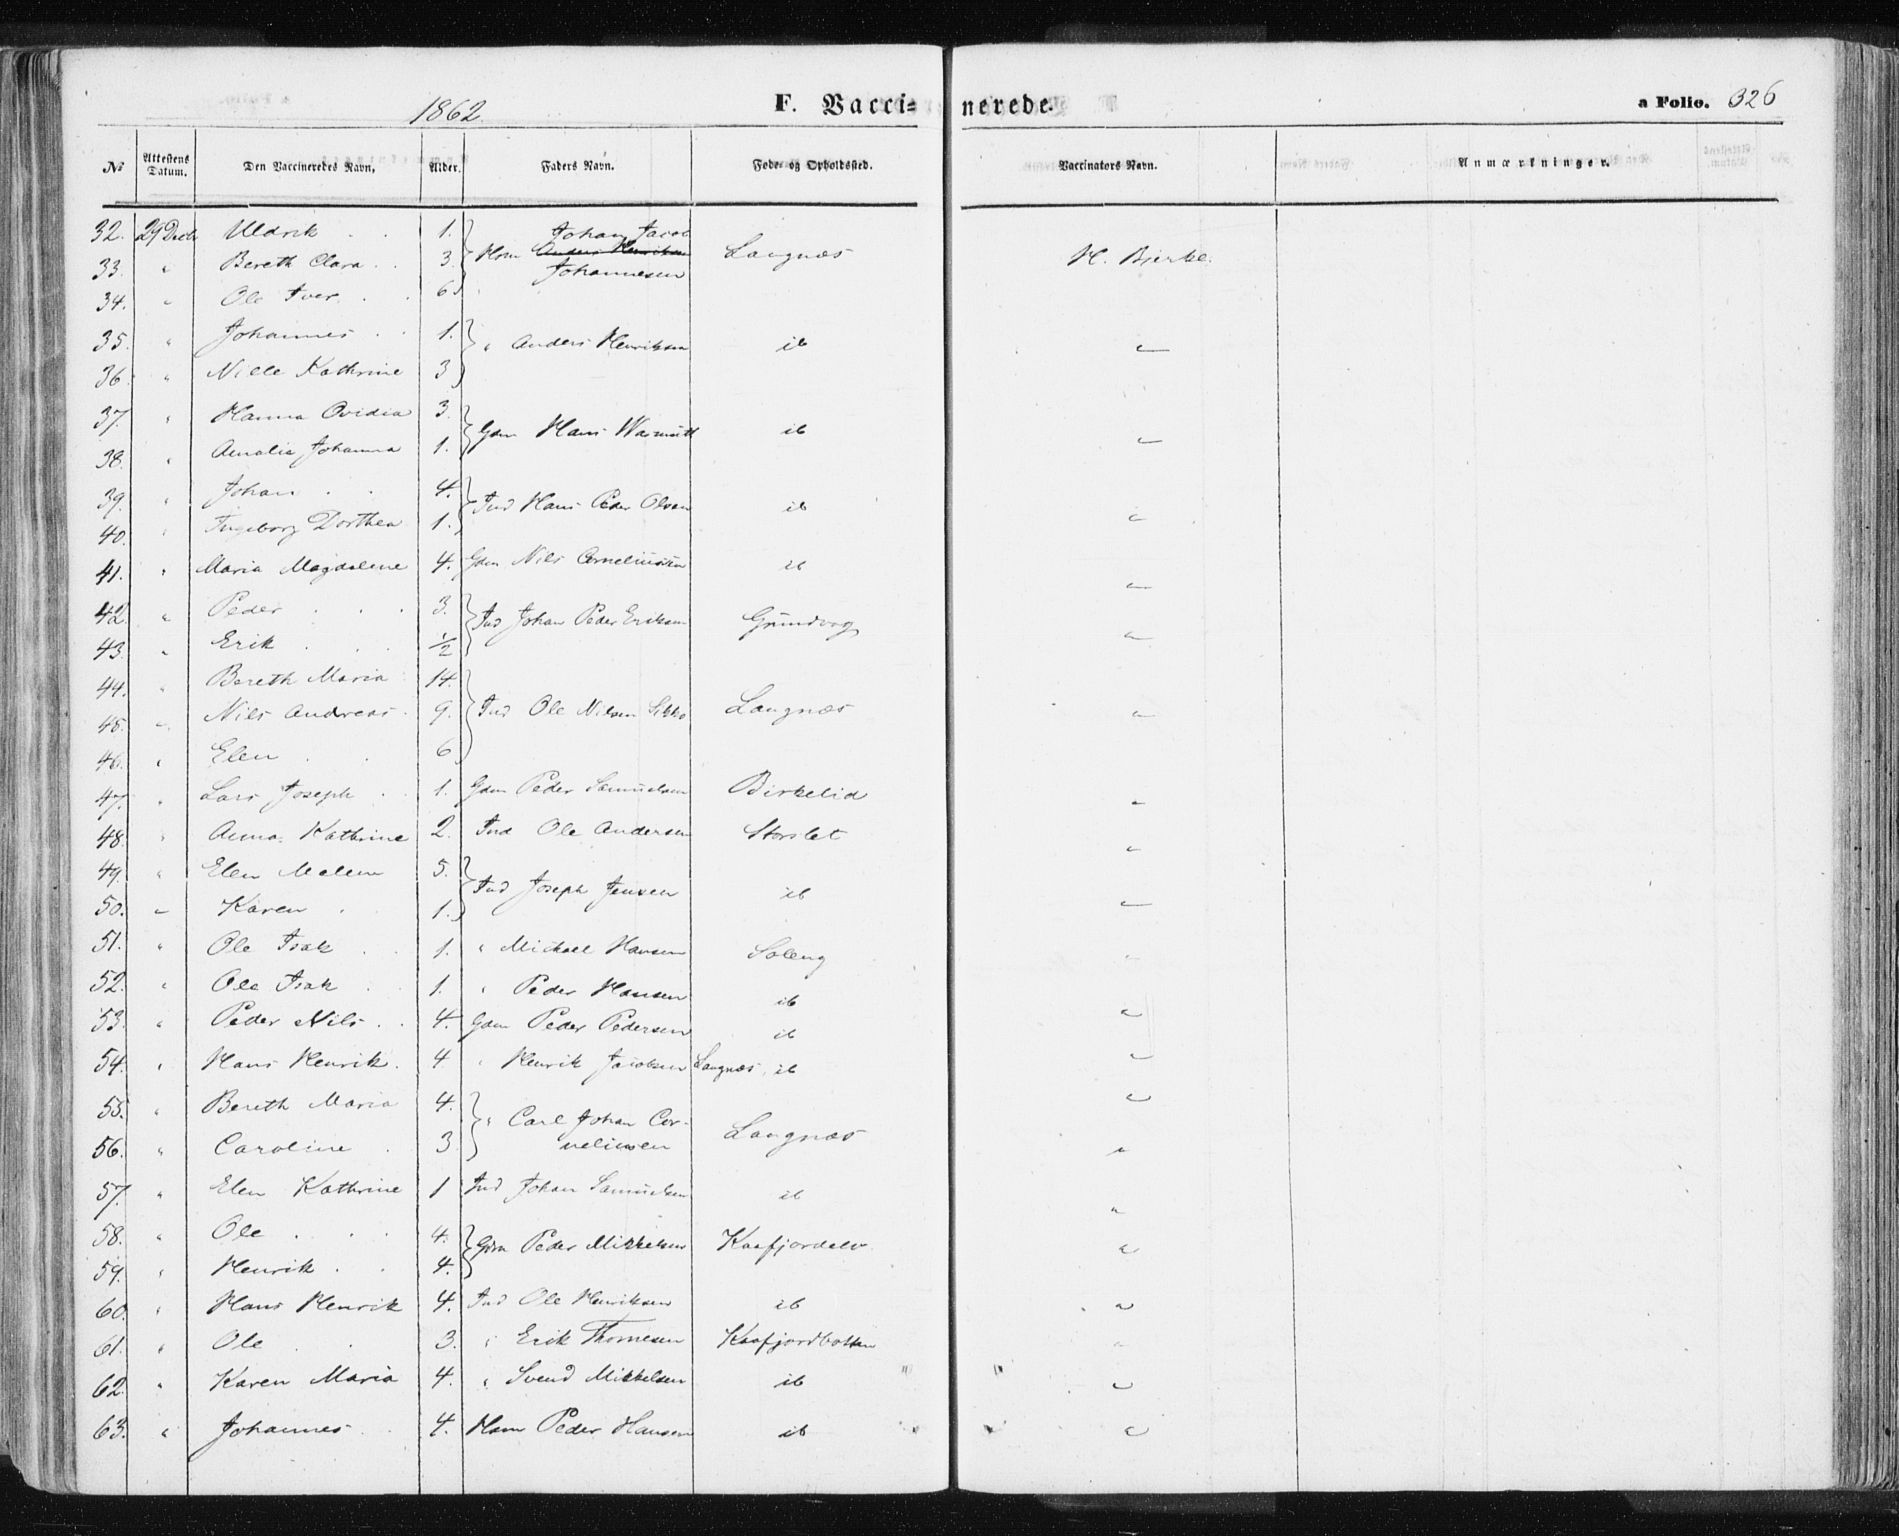 1862. F. Vacci- nerede. a Folio. 326
No Attestens Datum. Den Vaccineredes Navn. Alder. Faders Navn. Føde- og Opholdssted. Vaccinators Navn. Anmærkninger.
32. 29 Decb Uldrik . . 1. Johan Jacob
33. " Bereth Clara . . 3. Hsm Anders Henriksen Johannesen Langnæs H. Bjerke.
34. " Ole Iver . . 6.
35. " Johannes . . 1. " Anders Henriksen ib "
36. " Nille Kathrine 3
37. " Hanna Ovidia 3. Gdm Hans Warmuth ib "
38. " Amalie Johanna 1.
39. " Johan . . 4. Ind Hans Peder Olsen ib "
40. " Ingeborg Dorthea 1.
41. " Maria Magdalene 4. Gdm Nils Corneliussen ib "
42. " Peder . . . 3. Ind Johan Peder Eriksen Grundvog "
43. " Erik . . . 1/2
44. " Bereth Maria 14.
45. " Nils Andreas . 9. Ind Ole Nilsen Sikko Langnæs "
46. " Elen . . 6
47. " Lars Joseph . . 1. Gdm Peder Samuelsen Birkelid "
48. " Anna Kathrine 2. Ind Ole Andersen Storslet "
49. " Elen Malene 5. Ind Joseph Jensen ib "
50. " Karen . 1.
51. " Ole Isak . . 1. " Michael Hansen Soleng "
52. " Ole Isak . . 1. " Peder Hansen ib "
53. " Peder Nils . . 4. Gdm Peder Pedersen ib "
54. " Hans Henrik . 4 " Henrik Jacobsen Langnæs, ib "
55. " Bereth Maria 4. " Carl Johan Cor-
56. " Caroline . 3 neliusen Langnæs "
57. " Elen Kathrine 1 Ind Johan Samuelsen ib "
58. " Ole . . . 4. Gdm Peder Mikkelsen Kaafjordelv "
59. " Henrik . . 4.
60. " Hans Henrik 4. Ind Ole Henriksen ib "
61. " Ole . . 3. " Erik Thomesen Kaafjordbotten "
62. " Karen Maria 4. " Svend Mikkelsen ib "
63. " Johannes . 4. Hsm Peder Hansen ib "